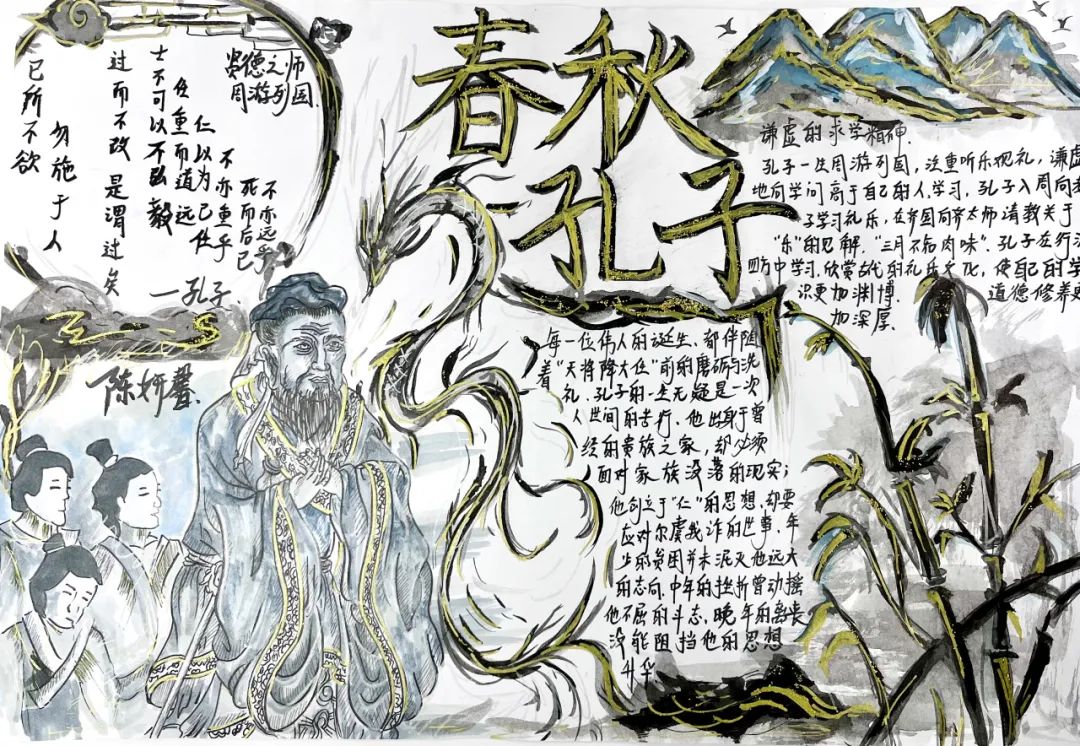 春秋
孔子
贤德之师
周游列国
己所不欲
勿施于人
过而不改 是谓过矣
士不可以不弘毅
任重而道远
仁以为己任
不亦重乎
死而后已
不亦远乎
—孔子
陈妍馨
谦虚的求学精神
孔子一生周游列国，注重听乐观礼，谦虚
地向学问高于自己的人学习，孔子入周向老
子学习礼乐，在齐国向齐太师请教关于
“乐”的见解，“三月不知肉味”．孔子在行
四方中学习、欣赏古代的礼乐文化，使自己的学
识更加渊博．道德修养更
加深厚．
每一位伟人的诞生、都伴随
着“天将降大任”前的磨砺与洗
礼、孔子的一生无疑是一次
人世间的苦行．他出身于曾
经的贵族之家，却必须
面对家族没落的现实；
他创立了“仁”的思想，却要
应对尔虞我诈的世事．年
少的贫困并未泯灭他远大
的志向．中年的挫折曾动摇
他不屈的斗志．晚年的离丧
没能困挡他的思想
升华